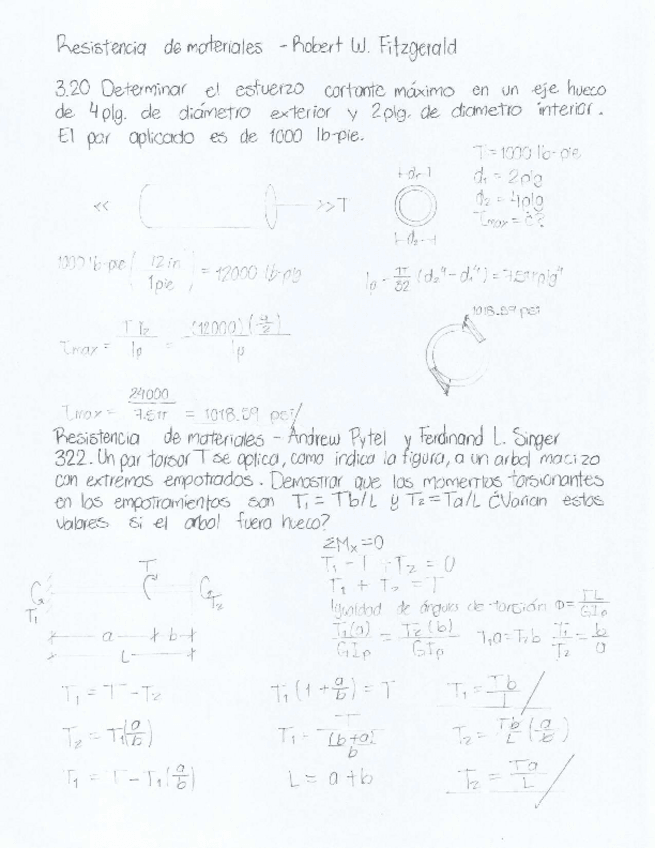 Resistencia de materiales - Robert W. Fitzgerald
3.20 Determinar el esfuerzo cortante máximo en un eje hueco
de 4plg. de diámetro exterior y 2plg. de diametro interior.
El par aplicado es de 1000 lb-pie.
T = 1000 lb-pie
d₁ = 2plg
d₂ = 4plg
τmax = ¿?
<< >>T
d₁
d₂
1000 lb-pie (12 in / 1 pie) = 12000 lb-plg
Ip = π/32 (d₂⁴ - d₁⁴) = 7.5π plg⁴
τmax = T r₂ / Ip = (12000)(4/2) / Ip
1018.59 psi
τmax = 24000 / 7.5π = 1018.59 psi
Resistencia de materiales - Andrew Pytel y Ferdinand L. Singer
322. Un par torsor T se aplica, como indica la figura, a un arbol macizo
con extremos empotrados. Demostrar que los momentos torsionantes
en los empotramientos son T₁ = Tb/L y T₂ = Ta/L ¿Varian estos
valores si el arbol fuera hueco?
ΣMx = 0
T₁ - T + T₂ = 0
T₁ + T₂ = T
Igualdad de ángulos de torsión Θ = TL / GIp
T₁(a) / GIp = T₂(b) / GIp T₁a = T₂b T₁/T₂ = b/a
T
T₁ T₂
a b
L
T₁ = T - T₂ T₁(1 + a/b) = T T₁ = Tb / L
T₂ = T₁(a/b) T₁ = T / ((b+a)/b) T₂ = Tb/L (a/b)
T₁ = T - T₁(a/b) L = a + b T₂ = Ta / L